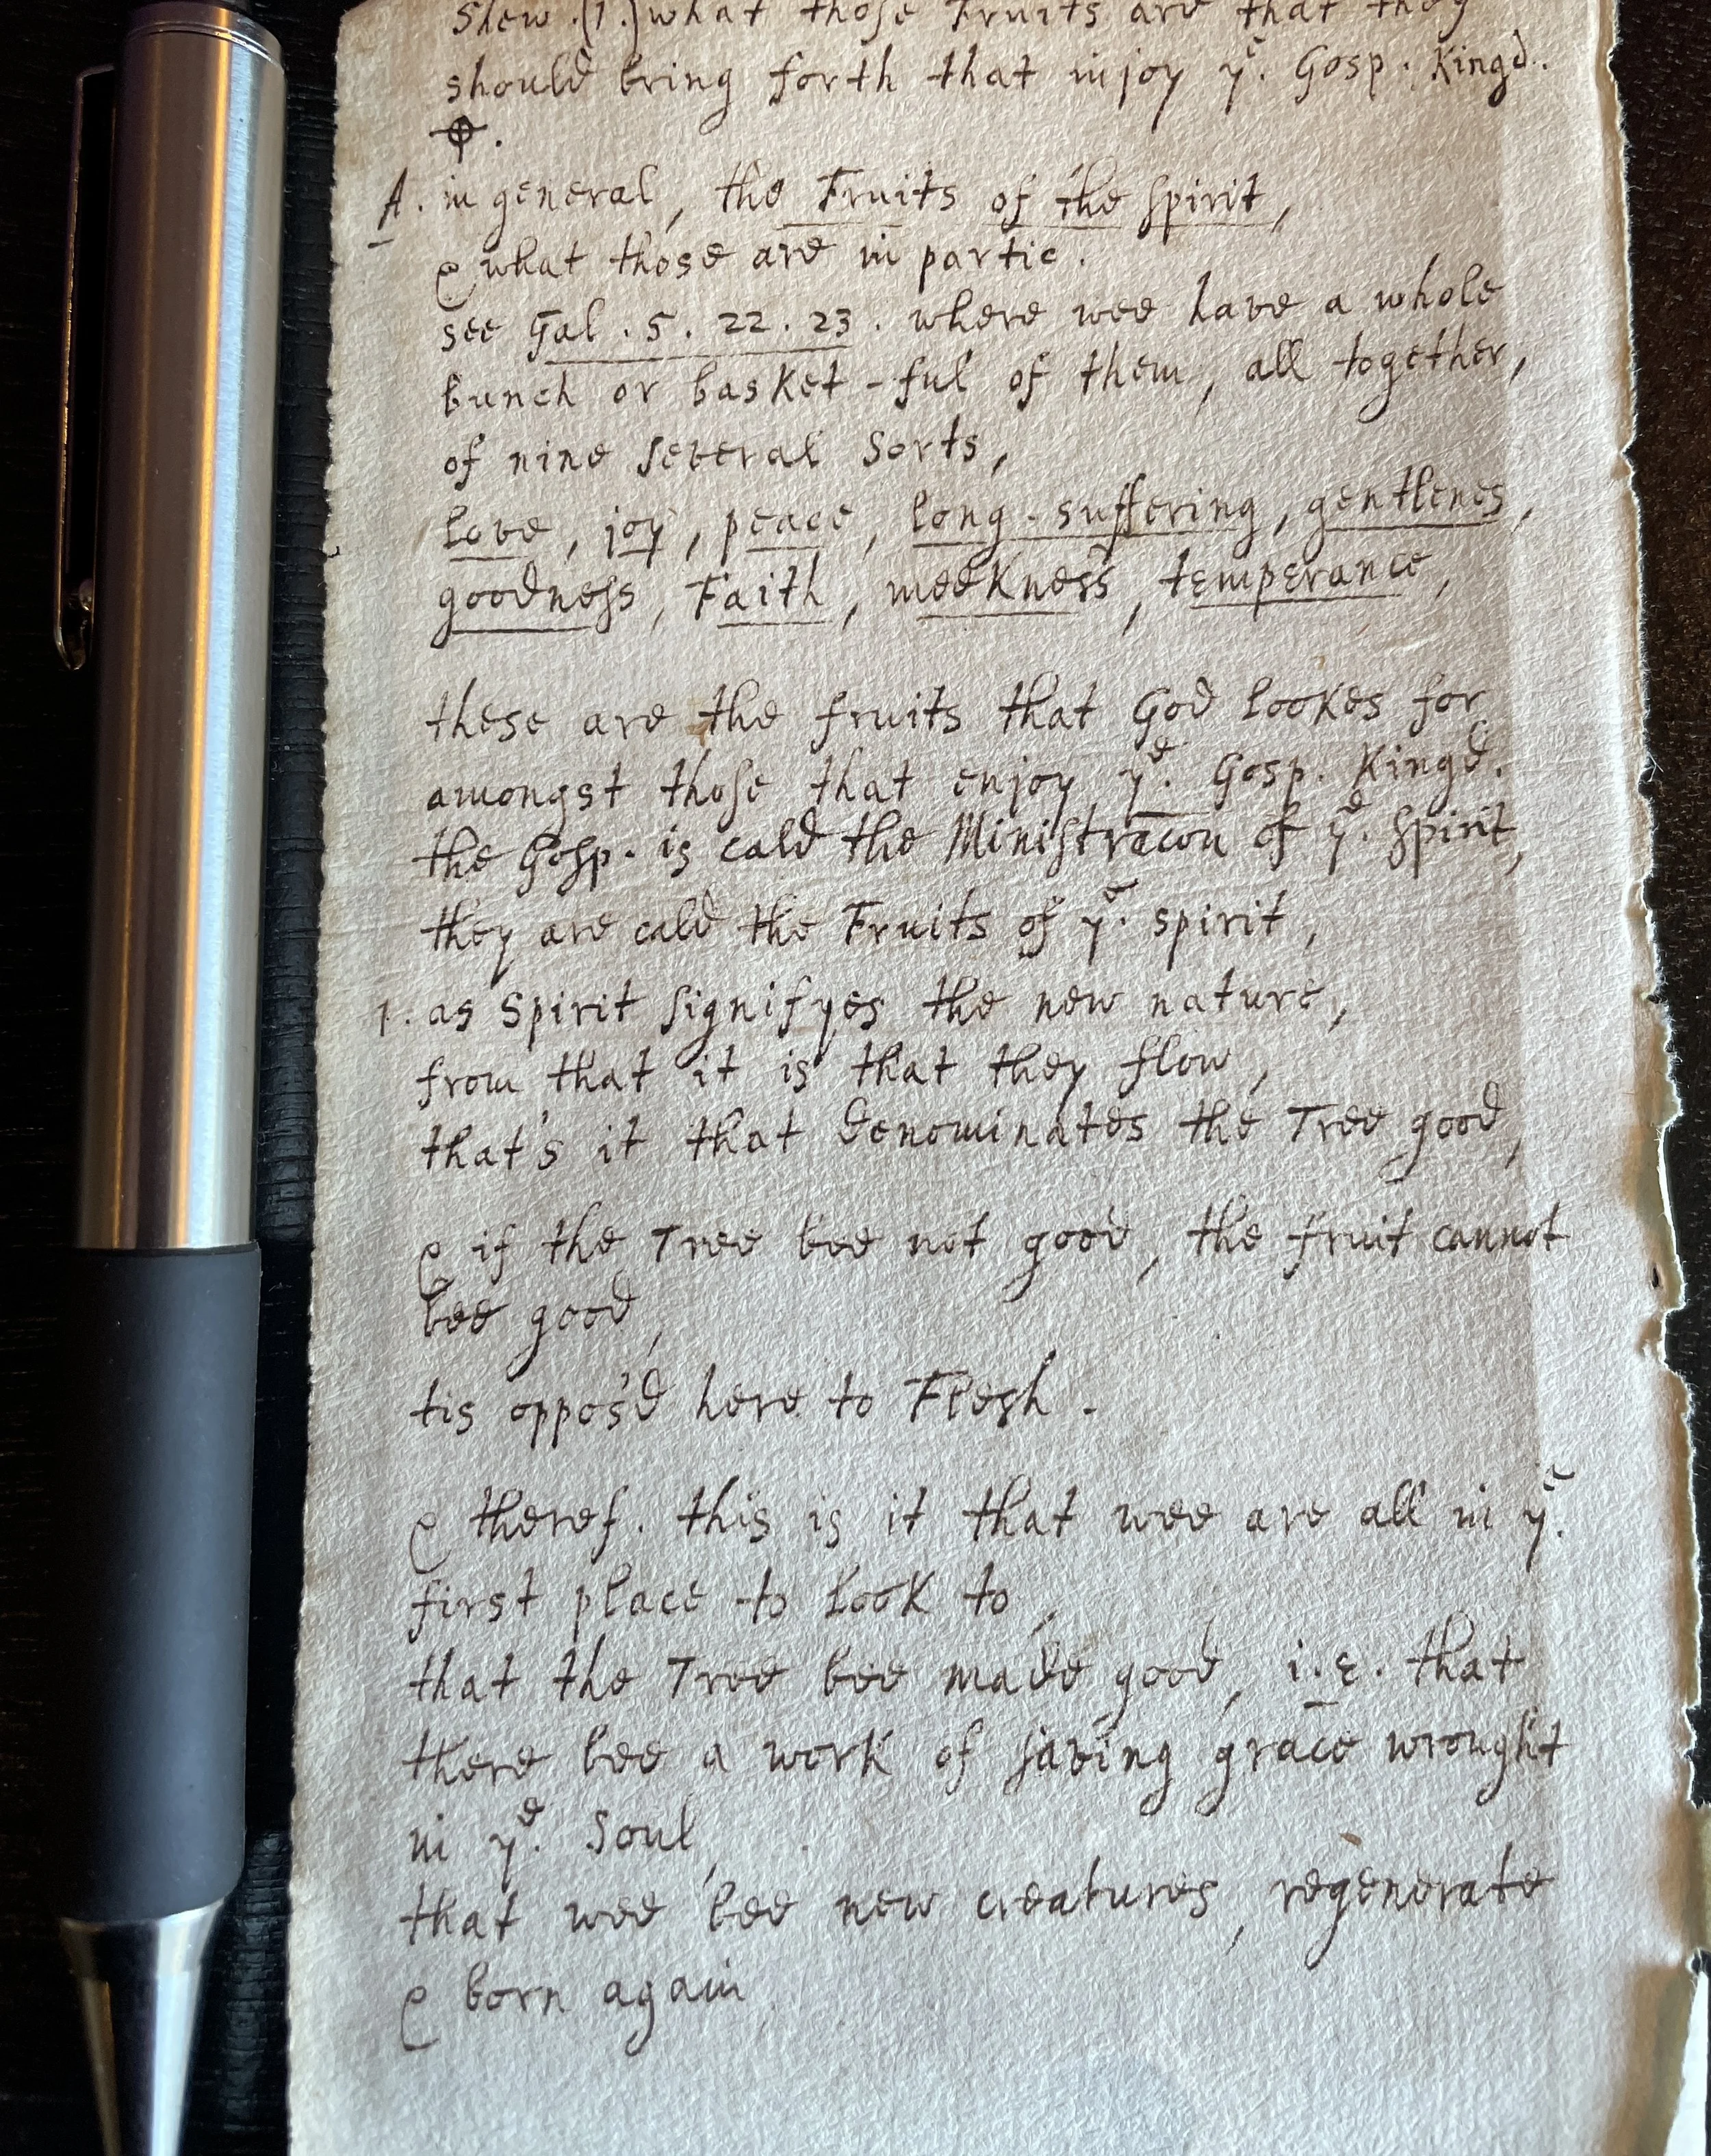 Shew.(1.) what those Fruits are that they
should bring forth that injoy yᵉ. Gosp. Kingd.
⌽.
A. in general, the Fruits of the Spirit,
& what those are in partic.
see Gal. 5. 22. 23. where wee have a whole
bunch or basket-ful of them, all together,
of nine several Sorts,
love, joy, peace, long-suffering, gentlenes,
goodness, Faith, meekness, temperance,
these are the fruits that God lookes for
amongst those that enjoy yᵉ. Gosp. Kingd.
the Gosp. is cald the Ministracon of yᵉ. Spirit,
they are cald the Fruits of yᵉ. spirit,
1. as Spirit signifyes the new nature,
from that it is that they flow,
that's it that denominates the Tree good,
& if the Tree bee not good, the fruit cannot
bee good,
tis oppos'd here to Flesh.
& theref. this is it that wee are all in yᵉ.
first place to look to,
that the Tree bee made good, i.e. that
there bee a work of saving grace wrought
in yᵉ. Soul,
that wee bee new creatures, regenerate
& born again,